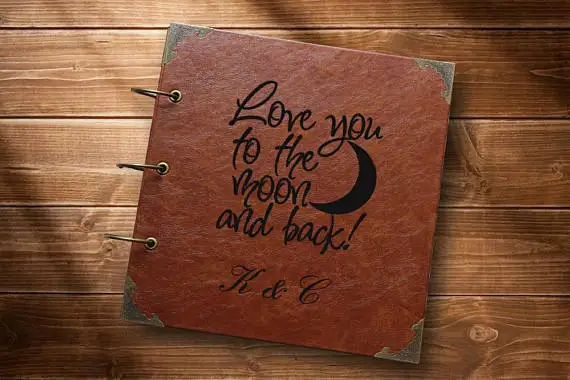 Love you
to the
moon
and back!
K & C